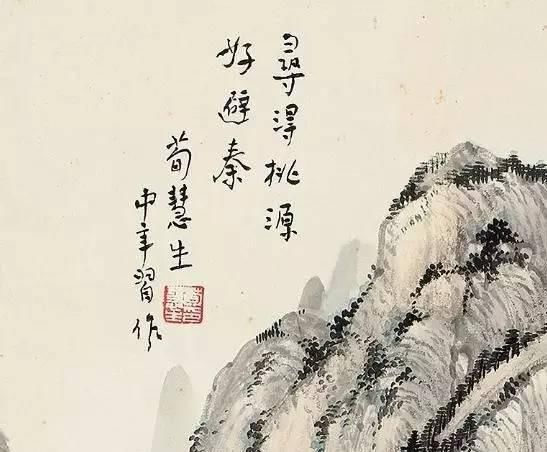 尋得桃源
好避秦
荀慧生
中年習作